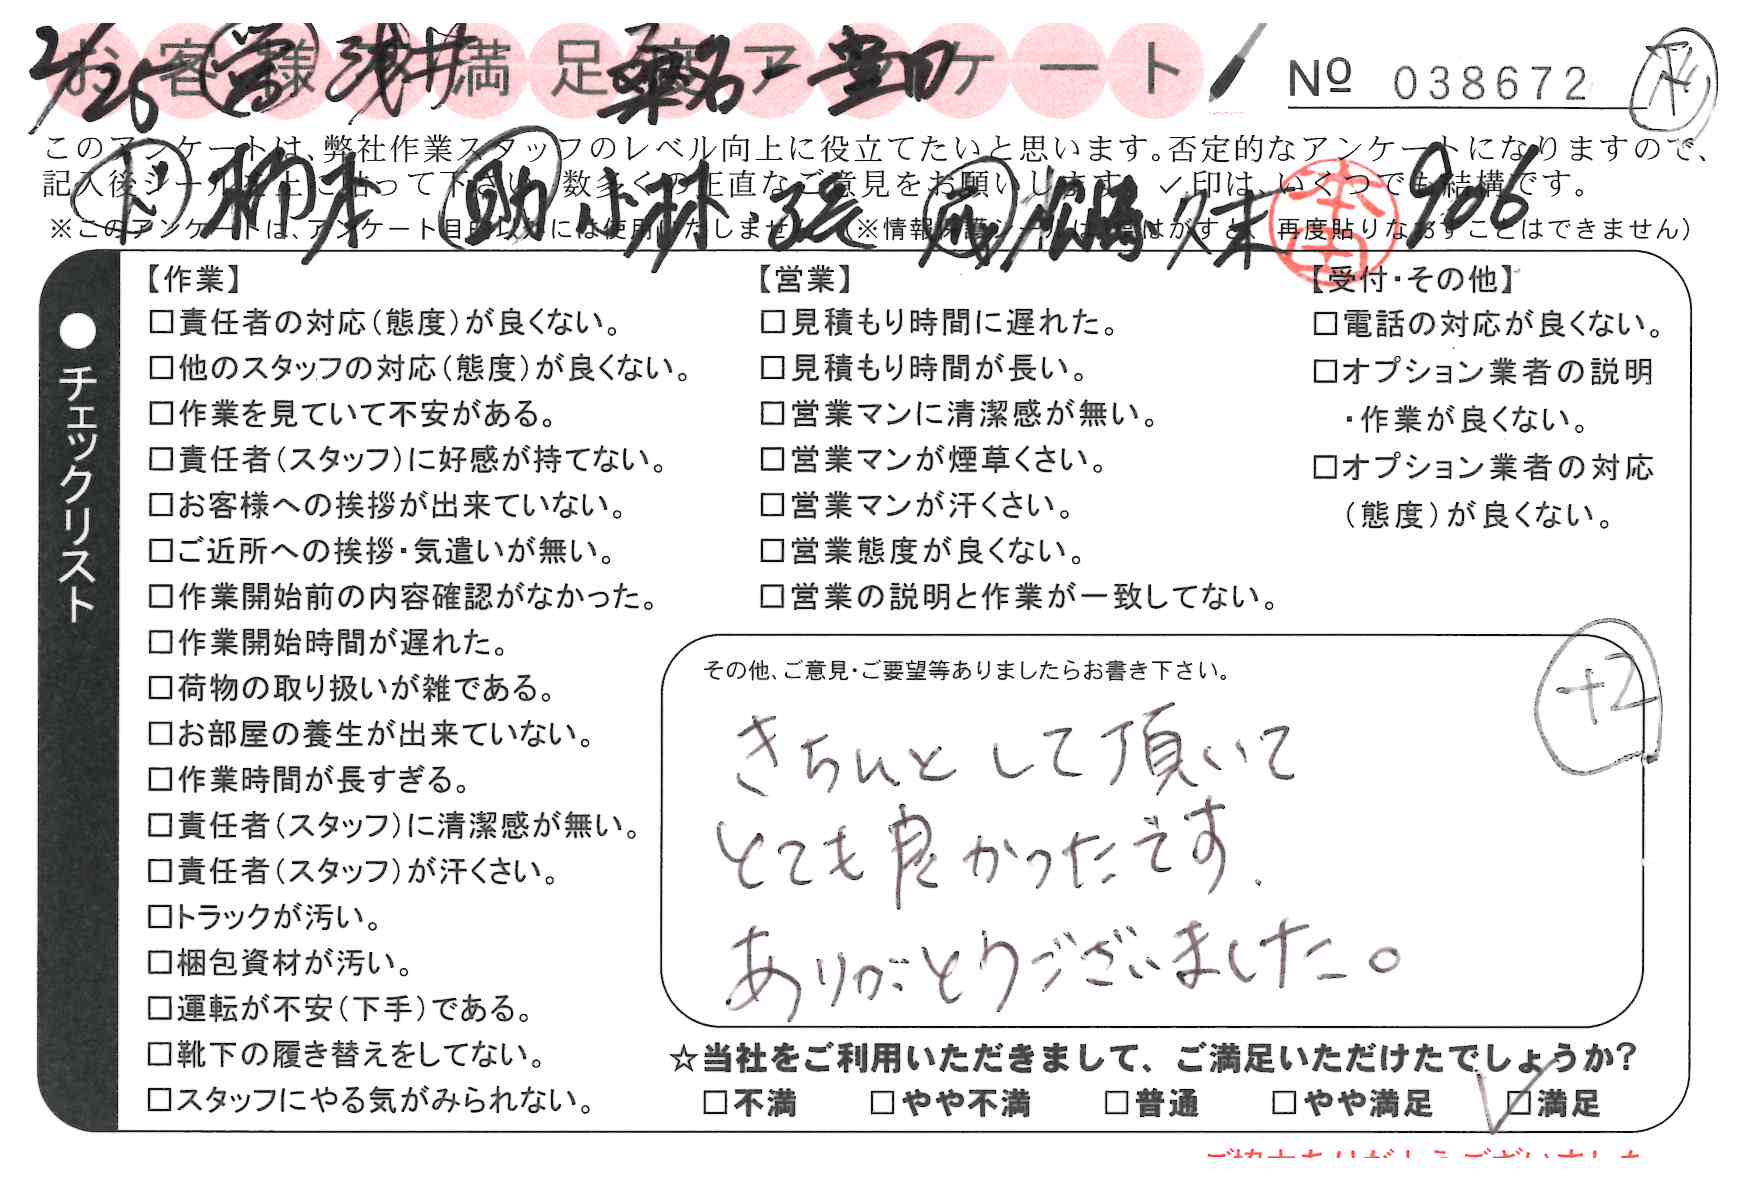 お客様 満足度アンケート
2/26 営 浅井 桑名 豊田
No 038672
このアンケートは、弊社作業スタッフのレベル向上に役立てたいと思います。否定的なアンケートになりますので、
記入後シールを上に貼って下さい。数多くの正直なご意見をお願いします。✓印は、いくつでも結構です。
ド 柳本 助 小林・ 906
本田
※このアンケートは、アンケート目的以外には使用いたしません。(※情報保護シールは一度はがすと、再度貼りなおすことはできません)
●チェックリスト
【作業】
□責任者の対応(態度)が良くない。
□他のスタッフの対応(態度)が良くない。
□作業を見ていて不安がある。
□責任者(スタッフ)に好感が持てない。
□お客様への挨拶が出来ていない。
□ご近所への挨拶・気遣いが無い。
□作業開始前の内容確認がなかった。
□作業開始時間が遅れた。
□荷物の取り扱いが雑である。
□お部屋の養生が出来ていない。
□作業時間が長すぎる。
□責任者(スタッフ)に清潔感が無い。
□責任者(スタッフ)が汗くさい。
□トラックが汚い。
□梱包資材が汚い。
□運転が不安(下手)である。
□靴下の履き替えをしてない。
□スタッフにやる気がみられない。
【営業】
□見積もり時間に遅れた。
□見積もり時間が長い。
□営業マンに清潔感が無い。
□営業マンが煙草くさい。
□営業マンが汗くさい。
□営業態度が良くない。
□営業の説明と作業が一致してない。
【受付・その他】
□電話の対応が良くない。
□オプション業者の説明
・作業が良くない。
□オプション業者の対応
(態度)が良くない。
その他、ご意見・ご要望等ありましたらお書き下さい。
+2
きちんとして頂いて
とても良かったです.
ありがとうございました。
☆当社をご利用いただきまして、ご満足いただけたでしょうか?
□不満 □やや不満 □普通 □やや満足 ✓□満足
ご協力ありがとうございました